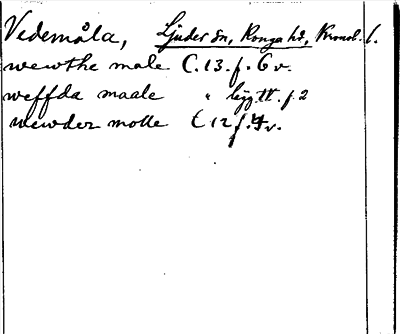 Vedemåla, Ljuder sn, Konga hd, Kronob. l.
wewthe male C. 13. f. 6 v.
weffda maale " lägg II. f. 2
wewder molle C 12 f. 4 v.